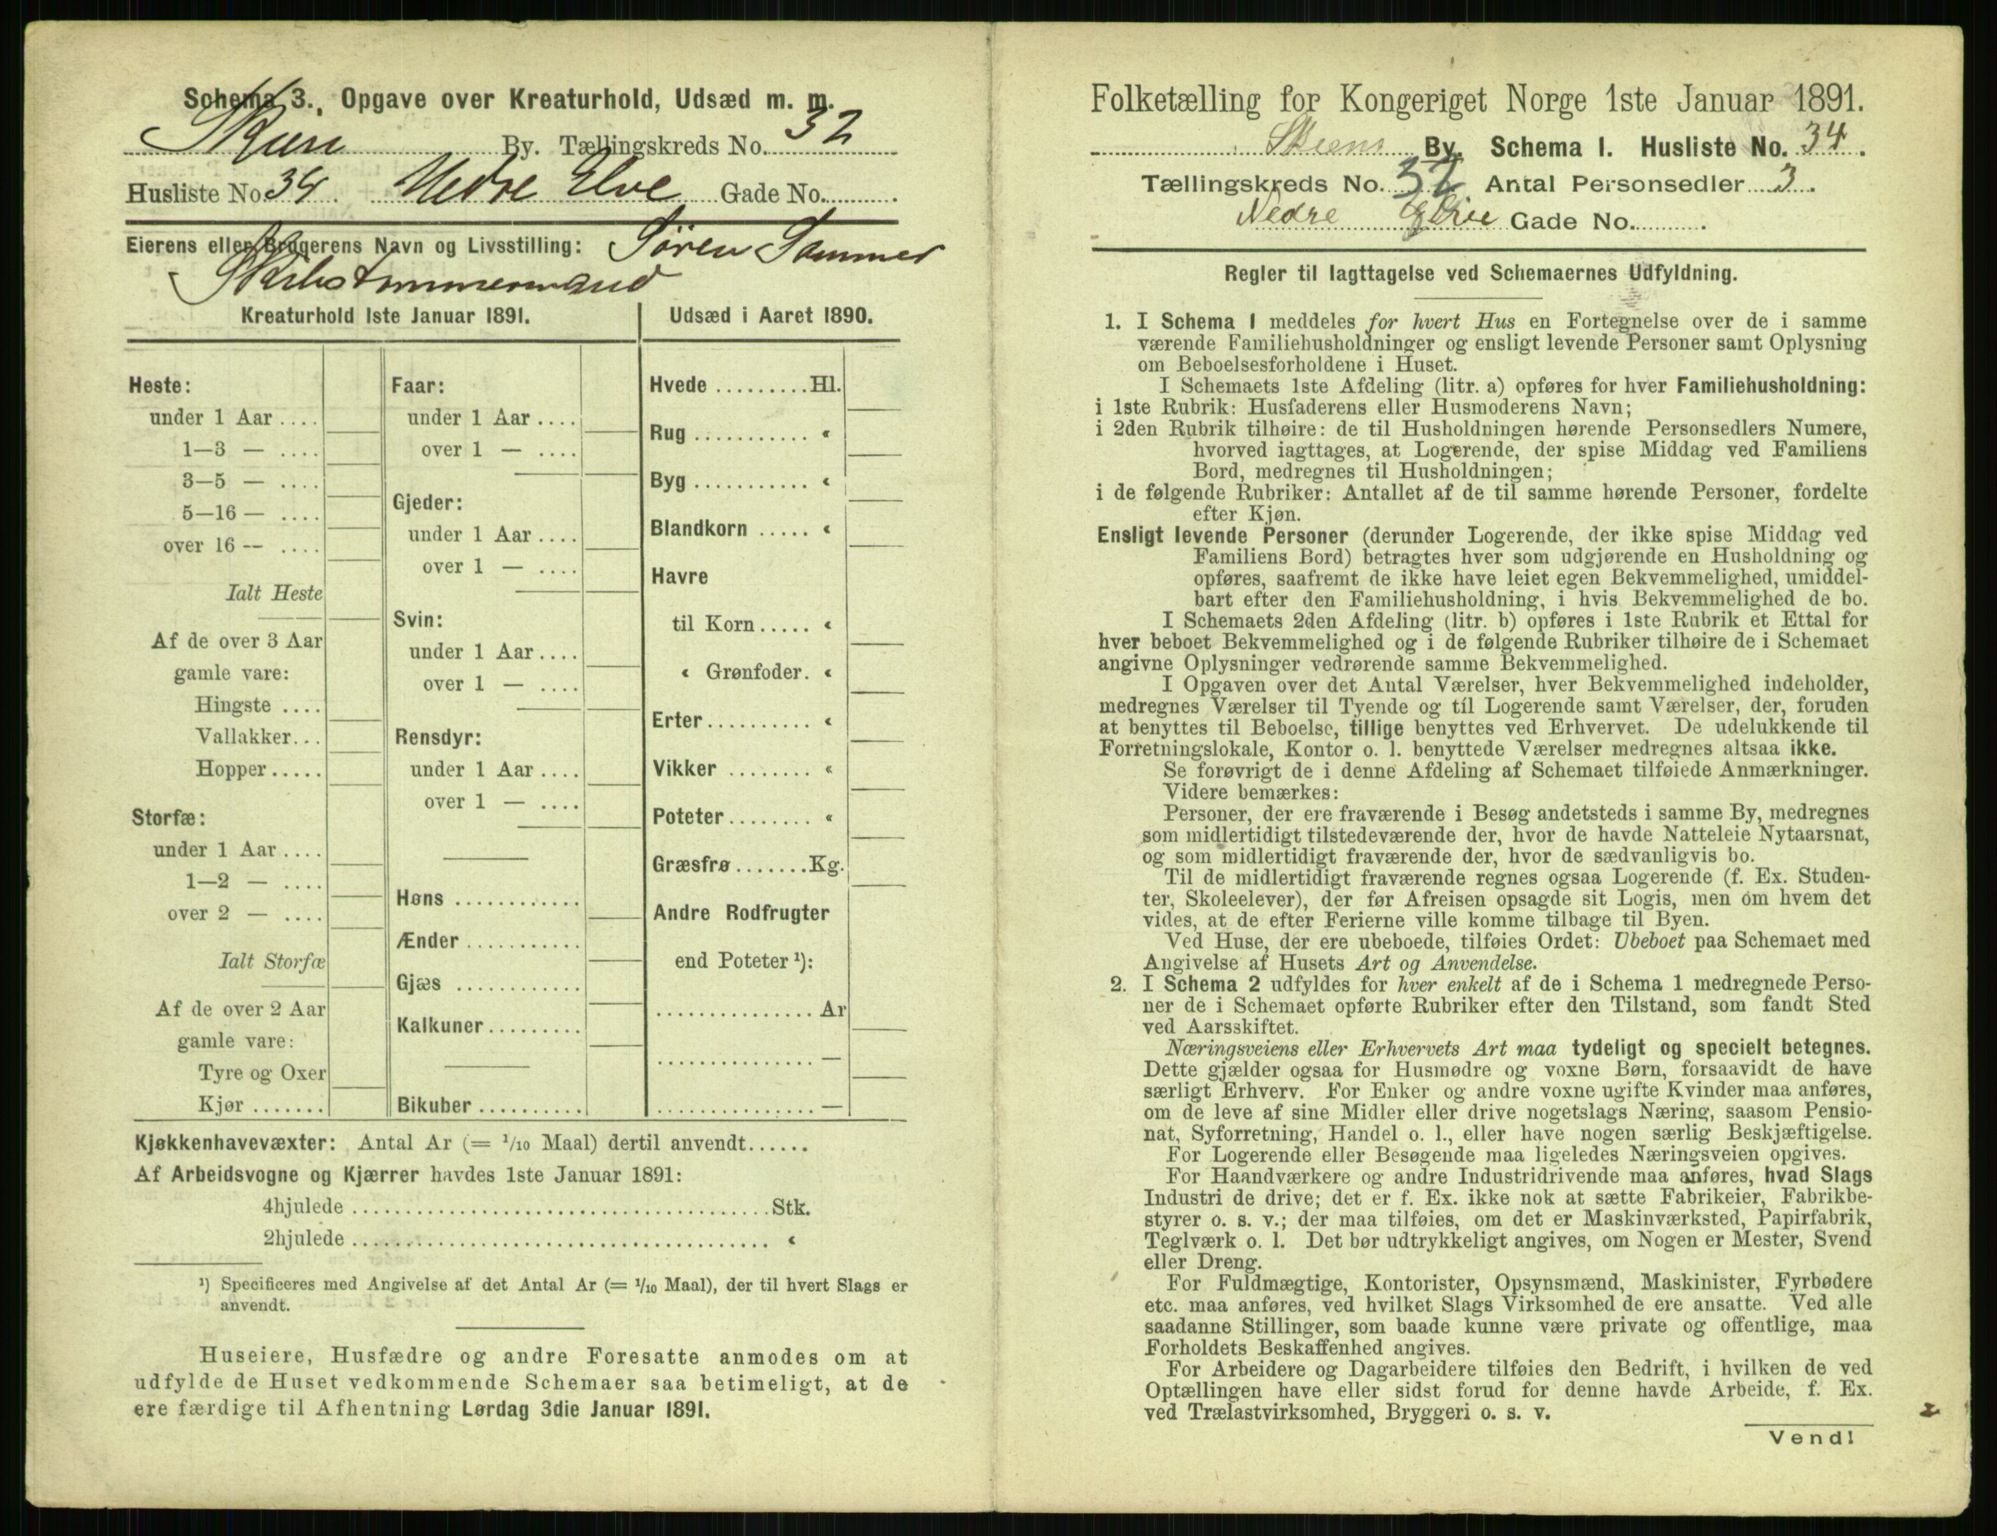 Schema 3. Opgave over Kreaturhold, Udsæd m. m.
Skien By. Tællingskreds No. 32
Husliste No. 34 Nedre Elve Gade No.
Eierens eller Brugerens Navn og Livsstilling: Søren Sommer
Skibstømmermand
Kreaturhold 1ste Januar 1891.
Heste:
under 1 Aar ....
1—3 — ....
3—5 — ....
5—16 — ....
over 16 — ....
Ialt Heste
Af de over 3 Aar
gamle vare:
Hingste ....
Vallakker...
Hopper.....
Storfæ:
under 1 Aar ....
1—2 — ....
over 2 — ....
Ialt Storfæ
Af de over 2 Aar
gamle vare:
Tyre og Oxer
Kjør .......
Faar:
under 1 Aar ....
over 1 — ....
Gjeder:
under 1 Aar ....
over 1 — ....
Svin:
under 1 Aar ....
over 1 — ....
Rensdyr:
under 1 Aar ....
over 1 — ....
Høns ............
Ænder ...........
Gjæs ............
Kalkuner.........
Bikuber ..........
Udsæd i Aaret 1890.
Hvede .........Hl.
Rug ........... «
Byg ........... «
Blandkorn ..... «
Havre
til Korn..... «
« Grønfoder. «
Erter.......... «
Vikker ........ «
Poteter........ «
Græsfrø.......Kg.
Andre Rodfrugter
end Poteter ¹):
............... Ar
............... —
............... —
Kjøkkenhavevæxter: Antal Ar (= 1/10 Maal) dertil anvendt......
Af Arbeidsvogne og Kjærrer havdes 1ste Januar 1891:
4hjulede ......................................Stk.
2hjulede ...................................... «
¹) Specificeres med Angivelse af det Antal Ar (= 1/10 Maal), der til hvert Slags er
anvendt.
Huseiere, Husfædre og andre Foresatte anmodes om at
udfylde de Huset vedkommende Schemaer saa betimeligt, at de
ere færdige til Afhentning Lørdag 3die Januar 1891.
Folketælling for Kongeriget Norge 1ste Januar 1891.
Skiens By. Schema 1. Husliste No. 34.
Tællingskreds No. 32 Antal Personsedler 3.
Nedre Elve Gade No.
Regler til Iagttagelse ved Schemaernes Udfyldning.
1. I Schema 1 meddeles for hvert Hus en Fortegnelse over de i samme
værende Familiehusholdninger og ensligt levende Personer samt Oplysning
om Beboelsesforholdene i Huset.
I Schemaets 1ste Afdeling (litr. a) opføres for hver Familiehusholdning:
i 1ste Rubrik: Husfaderens eller Husmoderens Navn;
i 2den Rubrik tilhøire: de til Husholdningen hørende Personsedlers Numere,
hvorved iagttages, at Logerende, der spise Middag ved Familiens
Bord, medregnes til Husholdningen;
i de følgende Rubriker: Antallet af de til samme hørende Personer, fordelte
efter Kjøn.
Ensligt levende Personer (derunder Logerende, der ikke spise Middag ved
Familiens Bord) betragtes hver som udgjørende en Husholdning og
opføres, saafremt de ikke have leiet egen Bekvemmelighed, umiddel-
bart efter den Familiehusholdning, i hvis Bekvemmelighed de bo.
I Schemaets 2den Afdeling (litr. b) opføres i 1ste Rubrik et Ettal for
hver beboet Bekvemmelighed og i de følgende Rubriker tilhøire de i Schemaet
angivne Oplysninger vedrørende samme Bekvemmelighed.
I Opgaven over det Antal Værelser, hver Bekvemmelighed indeholder,
medregnes Værelser til Tyende og til Logerende samt Værelser, der, foruden
at benyttes til Beboelse, tillige benyttes ved Erhvervet. De udelukkende til
Forretningslokale, Kontor o. l. benyttede Værelser medregnes altsaa ikke.
Se forøvrigt de i denne Afdeling af Schemaet tilføiede Anmærkninger.
Videre bemærkes:
Personer, der ere fraværende i Besøg andetsteds i samme By, medregnes
som midlertidigt tilstedeværende der, hvor de havde Natteleie Nytaarsnat,
og som midlertidigt fraværende der, hvor de sædvanligvis bo.
Til de midlertidigt fraværende regnes ogsaa Logerende (f. Ex. Studen-
ter, Skoleelever), der før Afreisen opsagde sit Logis, men om hvem det
vides, at de efter Ferierne ville komme tilbage til Byen.
Ved Huse, der ere ubeboede, tilføies Ordet: Ubeboet paa Schemaet med
Angivelse af Husets Art og Anvendelse.
2. I Schema 2 udfyldes for hver enkelt af de i Schema 1 medregnede Perso-
ner de i Schemaet opførte Rubriker efter den Tilstand, som fandt Sted
ved Aarsskiftet.
Næringsveiens eller Erhvervets Art maa tydeligt og specielt betegnes.
Dette gjælder ogsaa for Husmødre og voxne Børn, forsaavidt de have
særligt Erhverv. For Enker og andre voxne ugifte Kvinder maa anføres,
om de leve af sine Midler eller drive nogetslags Næring, saasom Pensio-
nat, Syforretning, Handel o. l., eller have nogen særlig Beskjæftigelse.
For Logerende eller Besøgende maa ligeledes Næringsveien opgives.
For Haandværkere og andre Industridrivende maa anføres, hvad Slags
Industri de drive; det er f. Ex. ikke nok at sætte Fabrikeier, Fabrikbe-
styrer o. s. v.; der maa tilføies, om det er Maskinværksted, Papirfabrik,
Teglværk o. l. Det bør udtrykkeligt angives, om Nogen er Mester, Svend
eller Dreng.
For Fuldmægtige, Kontorister, Opsynsmænd, Maskinister, Fyrbødere
etc. maa anføres, ved hvilket Slags Virksomhed de ere ansatte. Ved alle
saadanne Stillinger, som baade kunne være private og offentlige, maa
Forholdets Beskaffenhed angives.
For Arbeidere og Dagarbeidere tilføies den Bedrift, i hvilken de ved
Optællingen have eller sidst forud for denne havde Arbeide, f. Ex.
ved Trælastvirksomhed, Bryggeri o. s. v.
Vend!